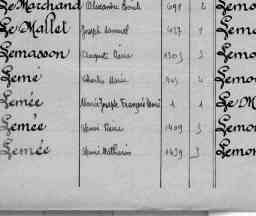 Le Marchand Alexandre Louis 691 2 Lemo
Le Mallet Joseph Samuel 457 1 Lemo
Lemasson Auguste Pierre 1303 3 Lemo
Lemé Charles Marie 2 Lemo
Lemée Marie Joseph François René 1 1 Le M
Lemée Henri Pierre 1409 3 Lemo
Lemée Henri Mathurin 1439 3 Lemon